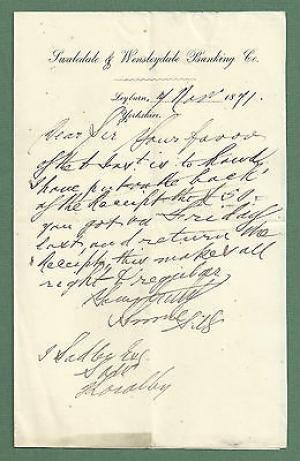 Swaledale & Wensleydale Banking Co.
Leyburn, 7 Nov 1871.
Yorkshire.
Dear Sir Your favor
of the inst is to hand
I have put on the back
of the Receipt the £50
you got on Friday
last, and return the
Receipt, this makes all
right & regular
Yours truly
J Sadler Esq
Thoralby